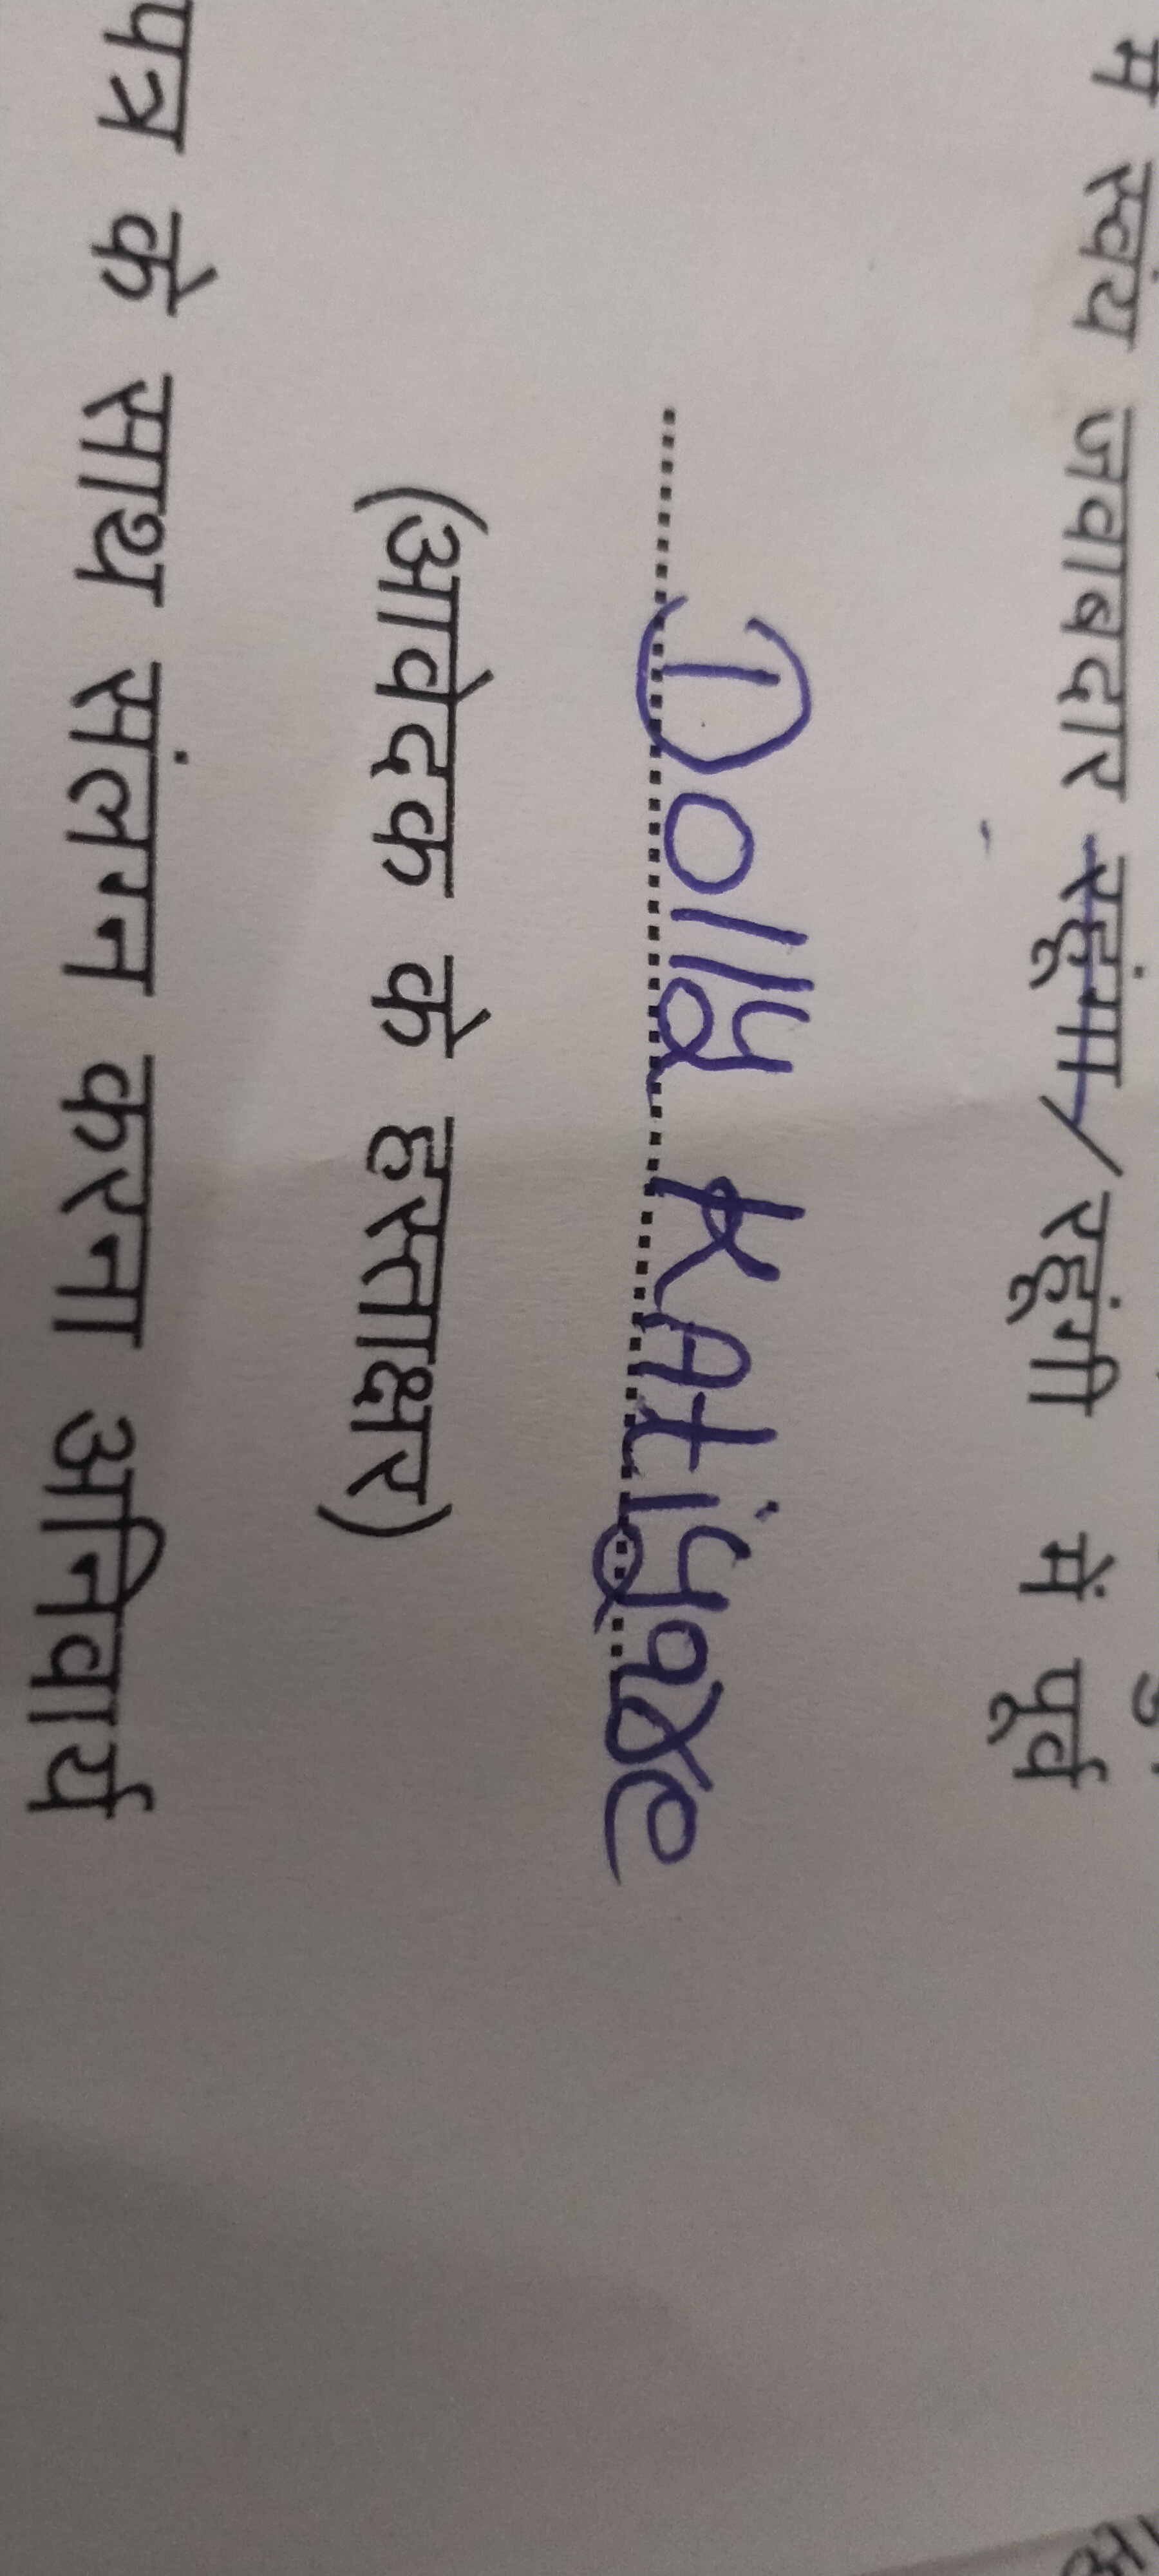 में स्वंय जवाबदार रहूंगा / रहूंगी में पूर्व
Dolly KAtiyare
(आवेदक के हस्ताक्षर)
पत्र के साथ संलग्न करना अनिवार्य